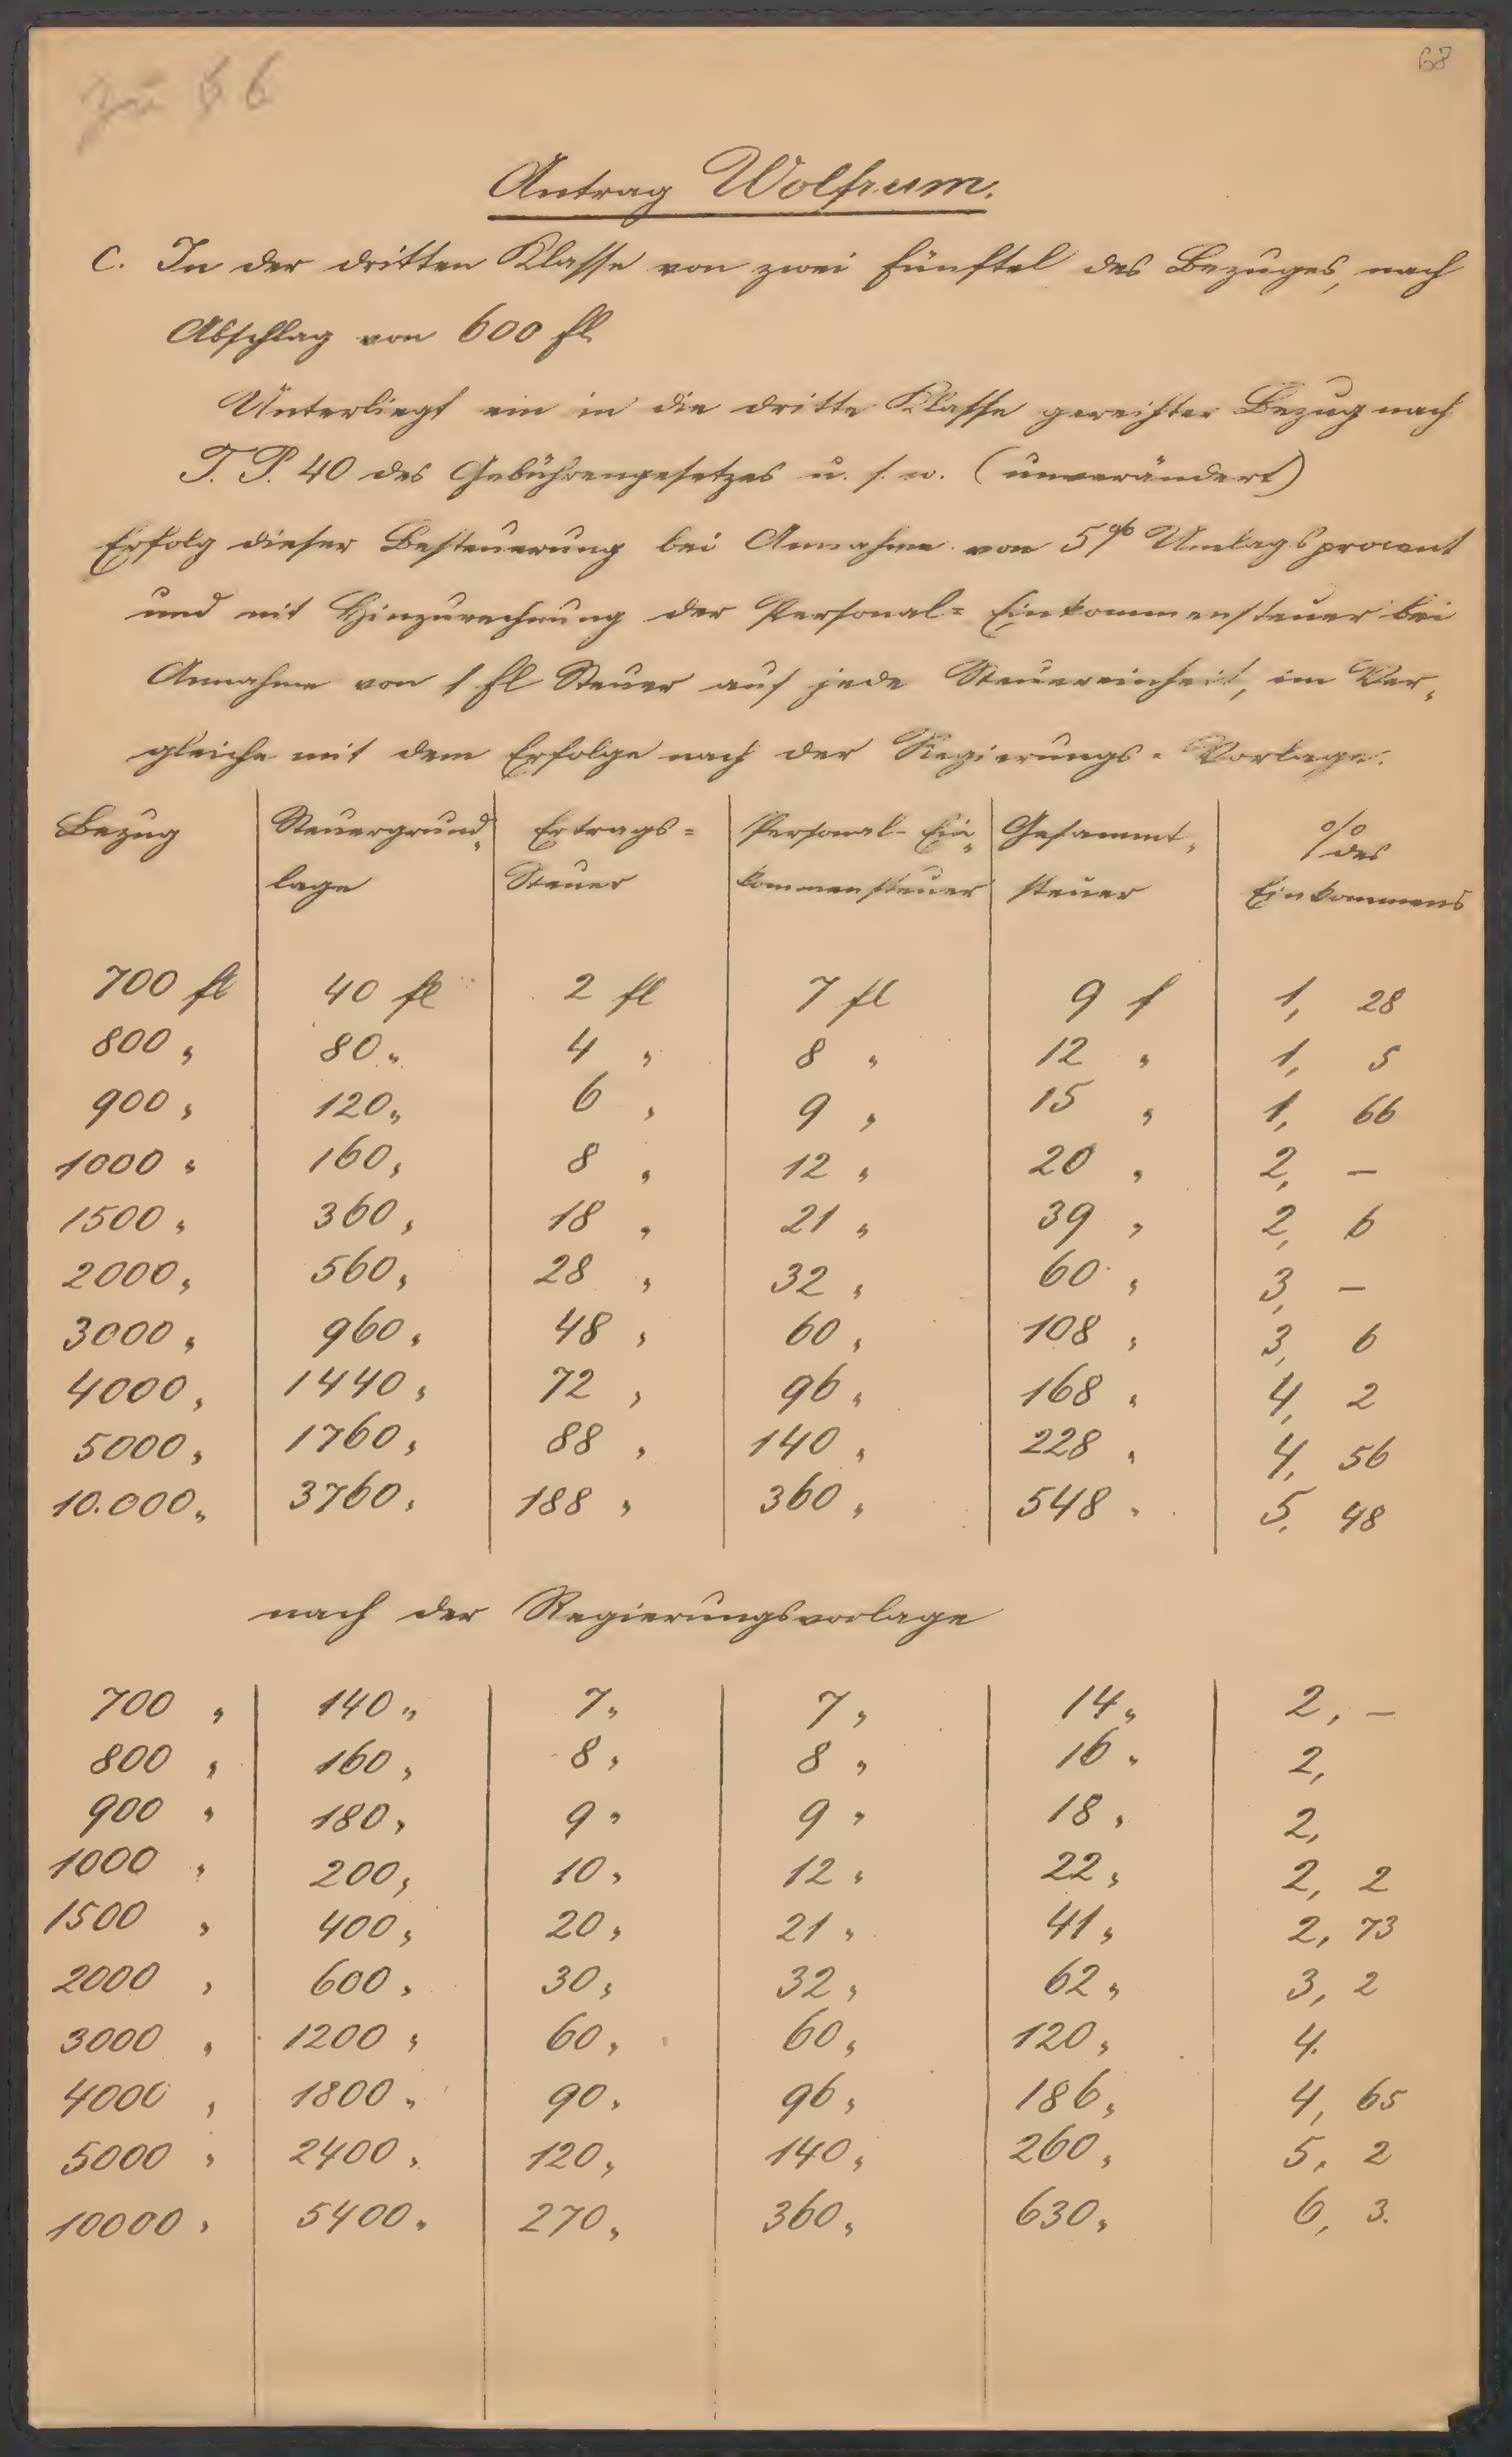 68
Zu § 6
Antrag Wolfrum.
C. In der dritten Klasse von zwei Fünftel des Bezuges, nach
Abschlag von 600 fl
Unterliegt ein in die dritte Klasse gereihter Bezug nach
T. P. 40 des Gebührengesetzes u. s. w. (unverändert)
Erfolg dieser Besteuerung bei Annahme von 5% Umlagsprocent
und mit Hinzurechnung der Personal= Einkommensteuer bei
Annahme von 1 fl Steuer auf jede Steuereinheit, im Ver„
gleiche mit dem Erfolge nach der Regierungs= Vorlage.
Bezug | Steuergrund„ | Ertrags= | Personal-Ein„ | Gesammt„ | % des
lage | Steuer | kommensteuer | steuer | Einkommens
700 fl | 40 fl | 2 fl | 7 fl | 9 f | 1, 28
800 „ | 80 „ | 4 „ | 8 „ | 12 „ | 1, 5
900 „ | 120 „ | 6 „ | 9 „ | 15 „ | 1, 66
1000 „ | 160 „ | 8 „ | 12 „ | 20 „ | 2, —
1500 „ | 360 „ | 18 „ | 21 „ | 39 „ | 2, 6
2000 „ | 560 „ | 28 „ | 32 „ | 60 „ | 3, —
3000 „ | 960 „ | 48 „ | 60 „ | 108 „ | 3, 6
4000 „ | 1440 „ | 72 „ | 96 „ | 168 „ | 4, 2
5000 „ | 1760 „ | 88 „ | 140 „ | 228 „ | 4, 56
10.000 „ | 3760 „ | 188 „ | 360 „ | 548 „ | 5, 48
nach der Regierungsvorlage
700 „ | 140 „ | 7 „ | 7 „ | 14 „ | 2, —
800 „ | 160 „ | 8 „ | 8 „ | 16 „ | 2,
900 „ | 180 „ | 9 „ | 9 „ | 18 „ | 2,
1000 „ | 200 „ | 10 „ | 12 „ | 22 „ | 2, 2
1500 „ | 400 „ | 20 „ | 21 „ | 41 „ | 2, 73
2000 „ | 600 „ | 30 „ | 32 „ | 62 „ | 3, 2
3000 „ | 1200 „ | 60 „ | 60 „ | 120 „ | 4.
4000 „ | 1800 „ | 90 „ | 96 „ | 186 „ | 4, 65
5000 „ | 2400 „ | 120 „ | 140 „ | 260 „ | 5, 2
10000 „ | 5400 „ | 270 „ | 360 „ | 630 „ | 6, 3.